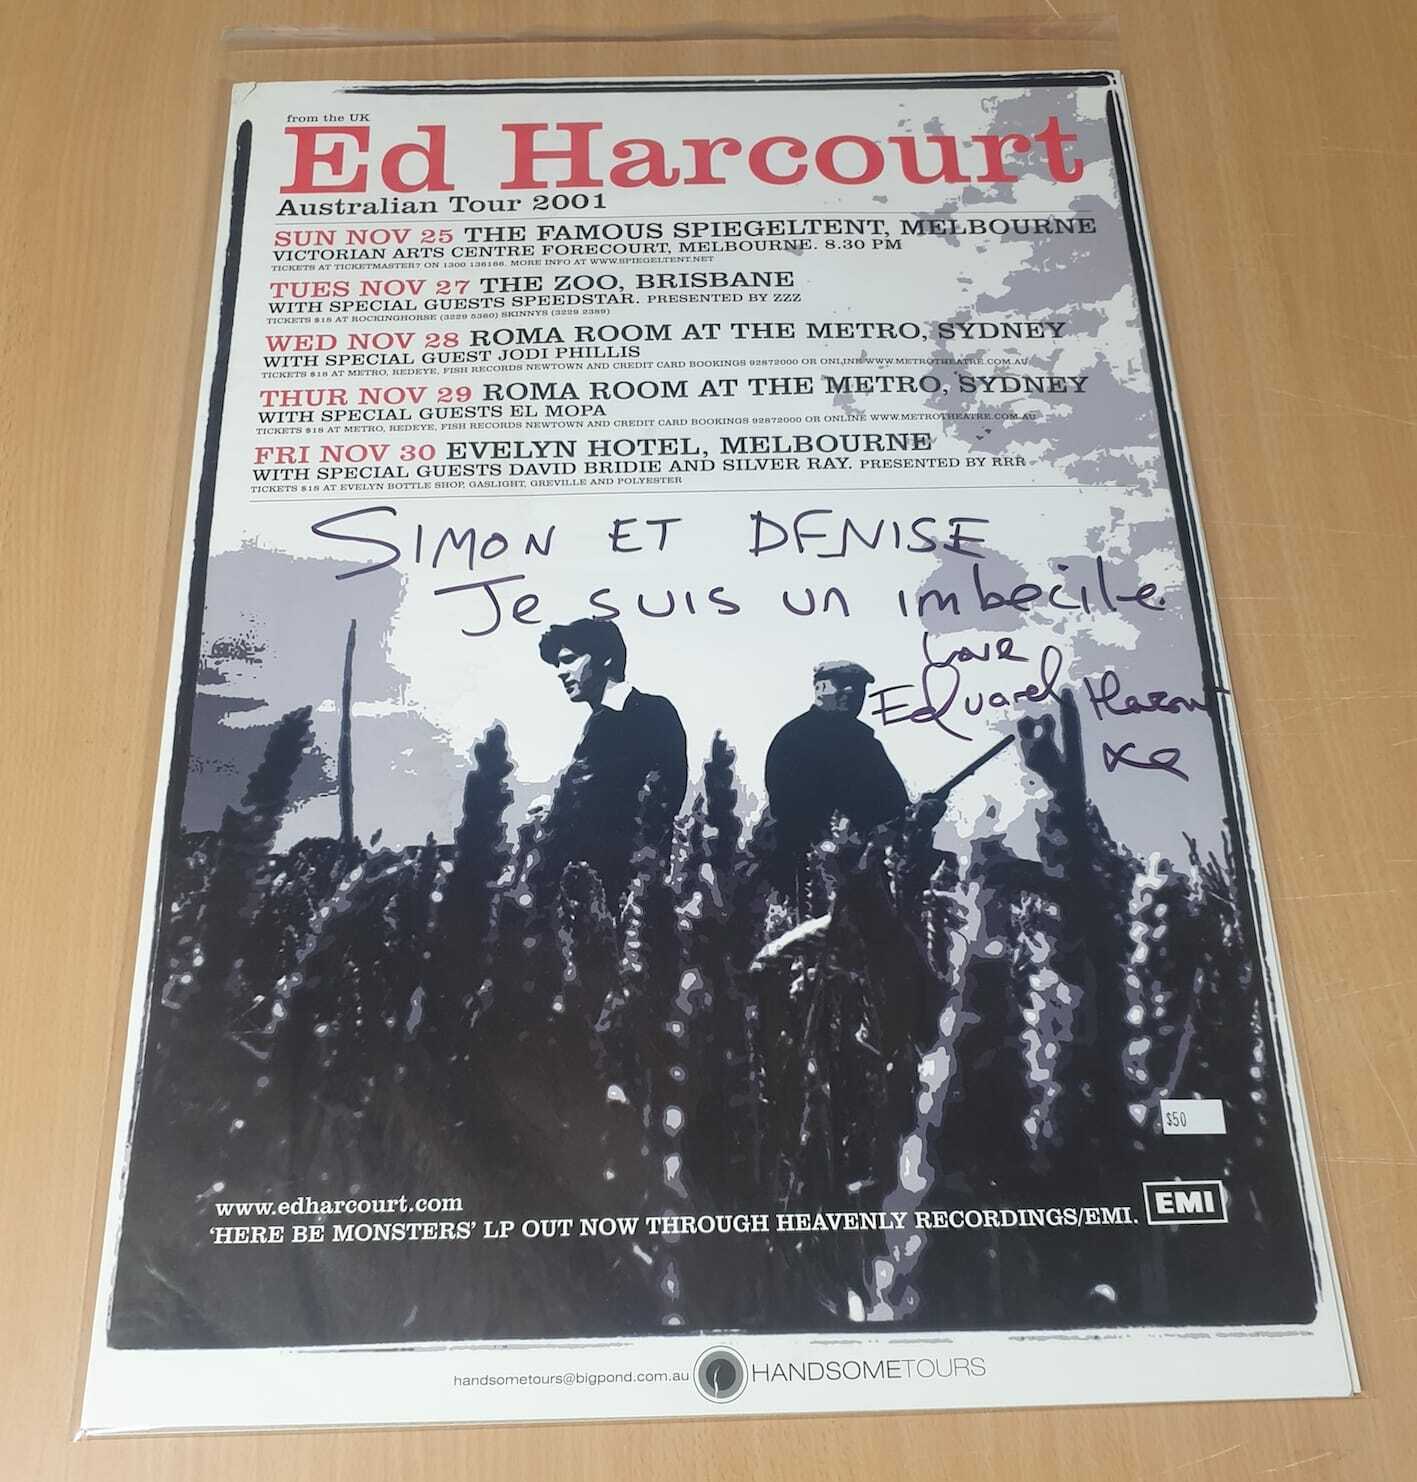 from the UK
Ed Harcourt
Australian Tour 2001
SUN NOV 25 THE FAMOUS SPIEGELTENT, MELBOURNE
VICTORIAN ARTS CENTRE FORECOURT, MELBOURNE. 8.30 PM
TICKETS AT TICKETMASTER7 ON 1300 136166. MORE INFO AT WWW.SPIEGELTENT.NET
TUES NOV 27 THE ZOO, BRISBANE
WITH SPECIAL GUESTS SPEEDSTAR. PRESENTED BY ZZZ
TICKETS $18 AT ROCKINGHORSE (3229 5360) SKINNYS (3229 2389)
WED NOV 28 ROMA ROOM AT THE METRO, SYDNEY
WITH SPECIAL GUEST JODI PHILLIS
TICKETS $18 AT METRO, REDEYE, FISH RECORDS NEWTOWN AND CREDIT CARD BOOKINGS 92872000 OR ONLINE WWW.METROTHEATRE.COM.AU
THUR NOV 29 ROMA ROOM AT THE METRO, SYDNEY
WITH SPECIAL GUESTS EL MOPA
TICKETS $18 AT METRO, REDEYE, FISH RECORDS NEWTOWN AND CREDIT CARD BOOKINGS 92872000 OR ONLINE WWW.METROTHEATRE.COM.AU
FRI NOV 30 EVELYN HOTEL, MELBOURNE
WITH SPECIAL GUESTS DAVID BRIDIE AND SILVER RAY. PRESENTED BY RRR
TICKETS $18 AT EVELYN BOTTLE SHOP, GASLIGHT, GREVILLE AND POLYESTER
SIMON ET DENISE
Je suis un imbecile.
Love
Edward
$50
www.edharcourt.com
'HERE BE MONSTERS' LP OUT NOW THROUGH HEAVENLY RECORDINGS/EMI.
EMI
handsometours@bigpond.com.au
HANDSOMETOURS